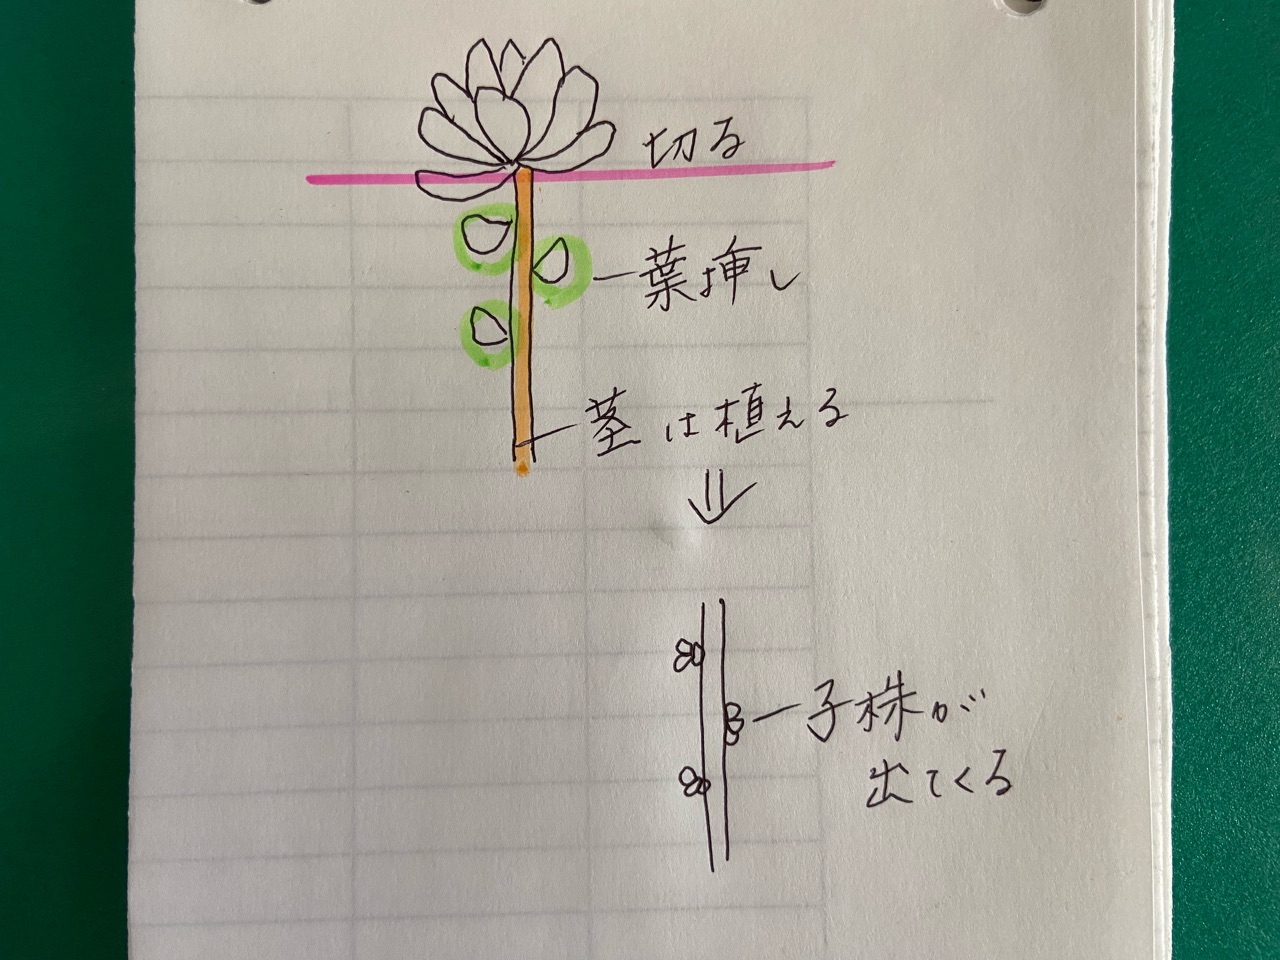 切る
葉挿し
茎は植える
子株が
出てくる